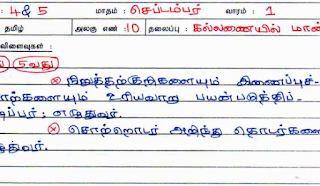 : 4&5 மாதம் : செப்டம்பர் வாரம் : 1
தமிழ் அலகு எண் :10 தலைப்பு : கல்லணையில் மான்
விளைவுகள் :
5வது
நிறுத்தற்குறிகளையும் இணைப்புச்-
சொற்களையும் உரியவாறு பயன்படுத்திப்-
படிப்பர்; எழுதுவர்.
சொற்றொடர் அறிந்து தொடர்களை